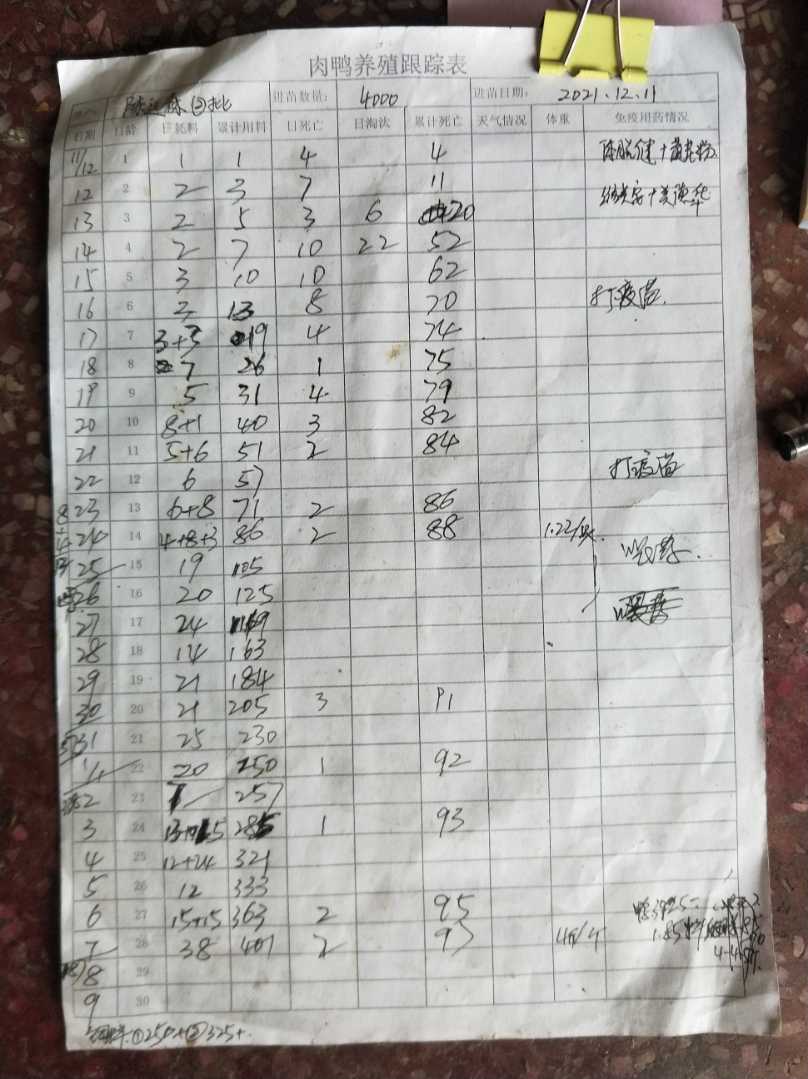 肉鸭养殖跟踪表
②批 进苗数量: 4000 进苗日期: 2021.12.11
日期 日龄 日耗料 累计用料 日死亡 日淘汰 累计死亡 天气情况 体重 免疫用药情况
11/12 1 1 1 4 4
12 2 2 3 7 11
13 3 2 5 3 6 20
14 4 2 7 10 22 52
15 5 3 10 10 62
16 6 3 13 8 70 打疫苗.
17 7 3+3 19 4 74
18 8 7 26 1 75
19 9 5 31 4 79
20 10 8+1 40 3 82
21 11 5+6 51 2 84
22 12 6 57 打疫苗
23 13 6+8 71 2 86
24 14 4+8+3 86 2 88
25 15 19 105
26 16 20 125
27 17 24 149
28 18 14 163
29 19 21 184
30 20 21 205 3 91
31 21 25 230
1/1 22 20 250 1 92
2 23 7 257
3 24 285 1 93
4 25 12+24 321
5 26 12 333
6 27 15+15 363 2 95
7 28 38 401 2 97
8 29
9 30